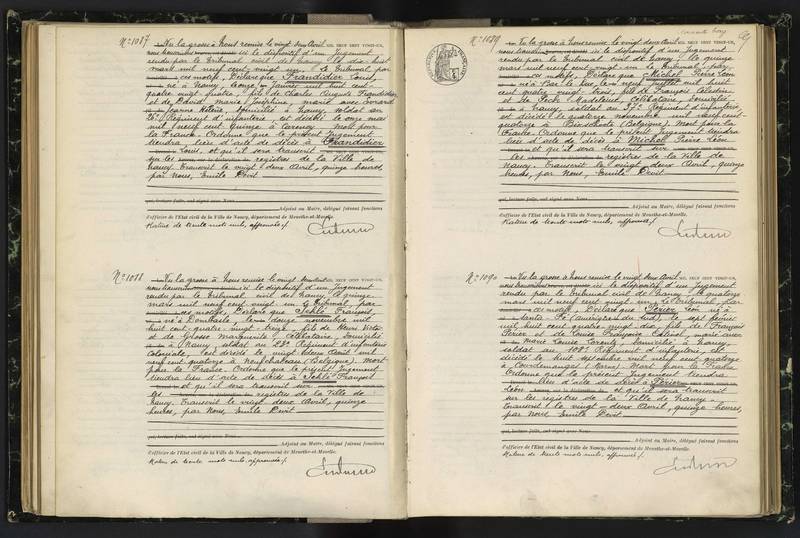 N° 1087
Vu la grosse à Nous remise le vingt deux Avril MIL NEUF CENT VINGT-UN,
nous transcrivons ici le dispositif d'un Jugement
rendu par le Tribunal civil de Nancy, le dix-huit
mars mil neuf cent vingt un. Le Tribunal par
ces motifs, Déclare que Frandidier Louis,
né à Nancy, le onze janvier mil huit cent
quatre vingt quatre, fils de Charles Auguste Frandidier
et de David Marie Joséphine, marié avec
Jeanne domicilié à Nancy, soldat au
26e Régiment d'infanterie, est décédé le onze mai
mil neuf cent quinze à Carency. Mort pour
la France. Ordonne que le présent Jugement
tiendra lieu d'acte de décès à Frandidier
Louis, et qu'il sera transcrit
sur les registres de la Ville de
Nancy. Transcrit le vingt deux Avril, quinze heures,
par nous, Emile Devit
qui, lecture faite, ont signé avec Nous
Adjoint au Maire, délégué faisant fonctions
d'officier de l'Etat civil de la Ville de Nancy, département de Meurthe-et-Moselle.
Rature de trente mots nuls, approuvée
N° 1088
Vu la grosse à Nous remise le vingt deux Avril MIL NEUF CENT VINGT-UN,
nous transcrivons ici le dispositif d'un Jugement
rendu par le Tribunal civil de Nancy, le quinze
mars mil neuf cent vingt un. Le Tribunal, par
ces motifs, Déclare que Jehlé François,
né à Dombasle, le douze novembre mil
huit cent quatre-vingt-treize, fils de Victor
et de Marguerite, célibataire, domicilié
à Nancy, soldat au Régiment d'infanterie
coloniale, est décédé le vingt deux Août mil
neuf cent quatorze à Neufchateau (Belgique). Mort
pour la France. Ordonne que le présent Jugement
tiendra lieu d'acte de décès à Jehlé François
et qu'il sera transcrit sur
les registres de la Ville de
Nancy. Transcrit le vingt deux Avril, quinze
heures, par Nous, Emile Devit
qui, lecture faite, ont signé avec Nous
Adjoint au Maire, délégué faisant fonctions
d'officier de l'Etat civil de la Ville de Nancy, département de Meurthe-et-Moselle.
Rature de trente mots nuls, approuvée
N° 1089
Vu la grosse à nous remise le vingt deux Avril MIL NEUF CENT VINGT-UN,
nous transcrivons ici le dispositif d'un Jugement
rendu par le Tribunal civil de Nancy, le quinze
mars mil neuf cent vingt un. Le Tribunal, par
ces motifs, Déclare que Michel Pierre Léon
né à Bar le Duc, le neuf juillet mil huit
cent quatre vingt trois, fils de François Célestin
et de Madeleine, célibataire, domicilié
à Nancy, soldat au 37e Régiment d'infanterie
est décédé le quatorze novembre mil neuf cent
quatorze à (Belgique). Mort pour la
France. Ordonne que le présent Jugement tiendra
lieu d'acte de décès à Michel Pierre Léon
et qu'il sera transcrit sur
les registres de la Ville de
Nancy. Transcrit le vingt deux Avril, quinze
heures, par Nous, Emile Devit
qui, lecture faite, ont signé avec Nous
Adjoint au Maire, délégué faisant fonctions
d'officier de l'Etat civil de la Ville de Nancy, département de Meurthe-et-Moselle.
Rature de trente mots nuls, approuvée
N° 1090
Vu la grosse à Nous remise le vingt deux Avril MIL NEUF CENT VINGT-UN,
nous transcrivons ici le dispositif d'un Jugement
rendu par le Tribunal civil de Nancy, le quatorze
mars mil neuf cent vingt un. Le Tribunal, par
ces motifs, Déclare que Périer Léon né à
(Amérique du Sud), le
mil huit cent quatre vingt dix, fils de François
Périer et de Louise Françoise, marié avec
Marie Louise, domicilié à Nancy,
soldat au Régiment d'infanterie, est
décédé le mil neuf cent quatorze
à Courdemanges (Marne). Mort pour la France
Ordonne que le présent Jugement tiendra
lieu d'acte de décès à Périer
Léon et qu'il sera transcrit
sur les registres de la Ville de Nancy.
Transcrit le vingt-deux Avril, quinze heures,
par Nous Emile Devit
qui, lecture faite, ont signé avec Nous
Adjoint au Maire, délégué faisant fonctions
d'officier de l'Etat civil de la Ville de Nancy, département de Meurthe-et-Moselle.
Rature de trente mots nuls, approuvée